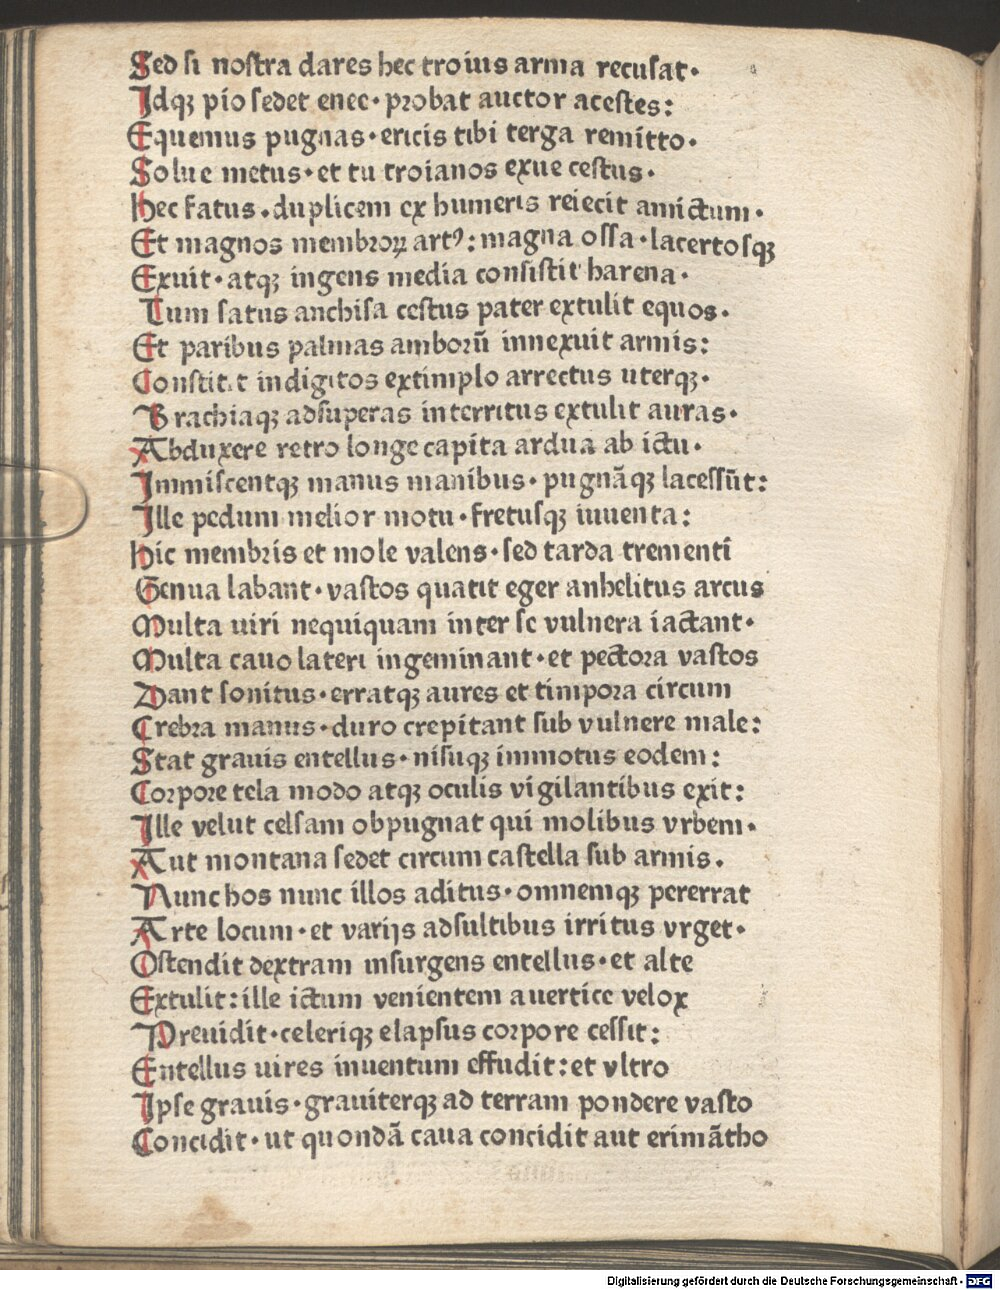 Sed si nostra dares hec troius arma recusat·
Idqꝫ pio sedet enee·probat auctor acestes:
Equemus pugnas·ericis tibi terga remitto·
Solue metus·et tu troianos exue cestus·
Hec fatus·duplicem ex humeris reiecit amictum·
Et magnos membroꝝ artꝰ:magna ossa·lacertosqꝫ
Exuit·atqꝫ ingens media consistit harena·
Tum satus anchisa cestus pater extulit equos·
Et paribus palmas amborū innexuit armis:
Constitit indigitos extimplo arrectus uterqꝫ·
Brachiaqꝫ adsuperas interritus extulit auras·
Abduxere retro longe capita ardua ab ictu·
Immiscentqꝫ manus manibus·pugnāqꝫ lacessūt:
Ille pedum melior motu·fretusqꝫ iuuenta:
Hic membris et mole valens·sed tarda trementi
Genua labant·vastos quatit eger anhelitus arcus
Multa uiri nequiquam inter se vulnera iactant·
Multa cauo lateri ingeminant·et pectora vastos
Dant sonitus·erratqꝫ aures et timpora circum
Crebra manus·duro crepitant sub vulnere male:
Stat grauis entellus·nisuqꝫ immotus eodem:
Corpore tela modo atqꝫ oculis vigilantibus exit:
Ille velut celsam obpugnat qui molibus vrbem·
Aut montana sedet circum castella sub armis·
Nunc hos nunc illos aditus·omnemqꝫ pererrat
Arte locum·et varijs adsultibus irritus vrget·
Ostendit dextram insurgens entellus·et alte
Extulit:ille ictum venientem auertice velox
Preuidit·celeriqꝫ elapsus corpore cessit:
Entellus uires inuentum effudit:et vltro
Ipse grauis·grauiterqꝫ ad terram pondere vasto
Concidit·ut quondā caua concidit aut erimātho
Digitalisierung gefördert durch die Deutsche Forschungsgemeinschaft · DFG